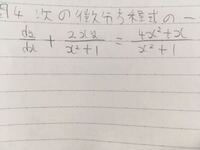 例4 次の微分方程式の一
dy/dx + 2xy/x²+1 = 4x²+x/x²+1